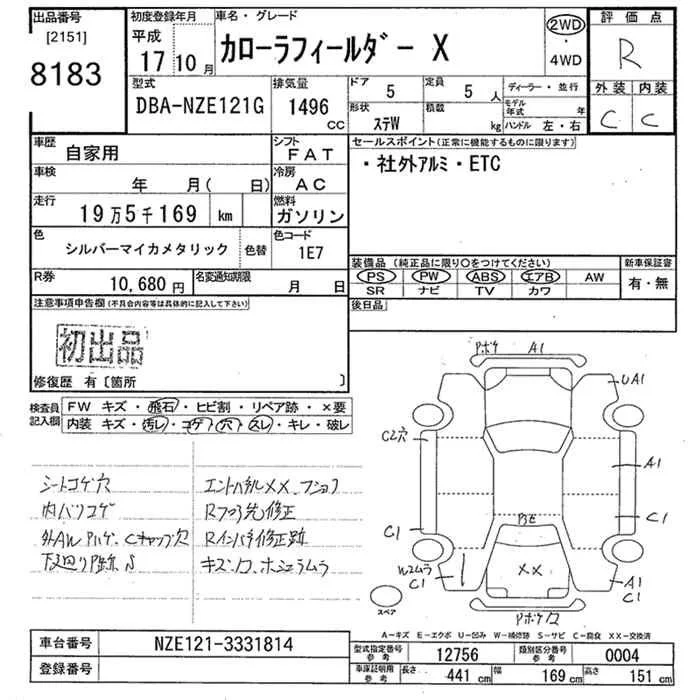 出品番号
[2151]
8183
初度登録年月
平成
17年10月
車名・グレード
カローラフィールダー X
2WD
・
4WD
評価点
R
外装 内装
C C
型式
DBA-NZE121G
排気量
1496
CC
ドア
5
定員
5人
形状
ステW
積載
kg
ディーラー・並行
モデル年式 年
ハンドル 左・右
車歴
自家用
シフト
FAT
車検
年 月( 日)
冷房
AC
走行
19万5千169 km
燃料
ガソリン
色
シルバーマイカメタリック
色替
色コード
1E7
R券
10,680円
名変通知期限
月 日
セールスポイント(正常に機能するものに限ります)
・社外アルミ・ETC
装備品(純正品に限り○をつけてください)
PS PW ABS エアB AW
SR ナビ TV カワ
新車保証書
有・無
後日品
注意事項申告欄(不具合内容等は具体的に記入して下さい)
初出品
修復歴 有〔箇所 〕
検査員
記入欄
FW キズ・飛石・ヒビ割・リペア跡・×要
内装 キズ・汚レ・コゲ・穴・スレ・キレ・破レ
シートコゲ穴
内バリコゲ
外AW Pハゲ、Cキャップ欠
エンドパネルXX
Rフロア先修正
Rインパネ修正跡
Pボケ A1
UA1
C2穴
A1
C1
C1
BE
XX
Wスムラ
C1
A1
C1
Pボケ
スペア
A-キズ E-エクボ U-凹み W-補修跡 S-サビ C-腐食 XX-交換済
車台番号
NZE121-3331814
登録番号
型式指定番号
参考
12756
類別区分番号
参考
0004
車庫証明用
参考
長さ 441 cm
幅 169 cm
高さ 151 cm